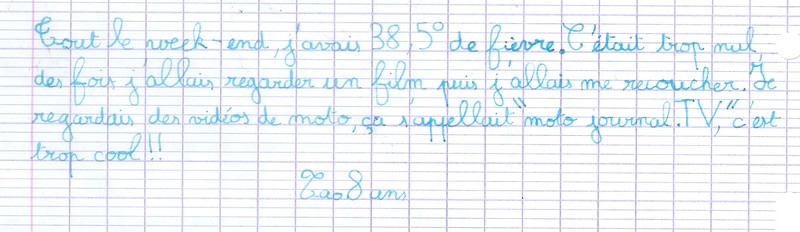 Tout le week-end, j'avais 38,5° de fièvre. C'était trop nul,
des fois j'allais regarder un film puis j'allais me recoucher. Je
regardais des vidéos de moto, ça s'appellait "moto journal.TV," c'est
trop cool!!
Tao 8 ans